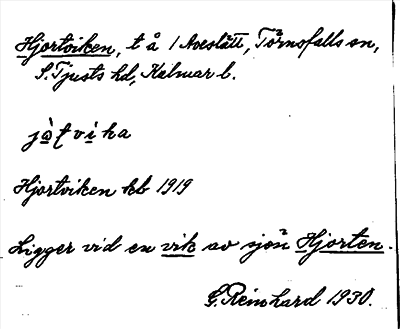 Hjortviken, t å 1 Aveslätt, Törnsfalls sn,
S. Tjusts hd, Kalmar l.
jo̱tvi̱ka
Hjortviken kb 1919
Ligger vid en vik av sjön Hjorten.
G. Reinhard 1930.